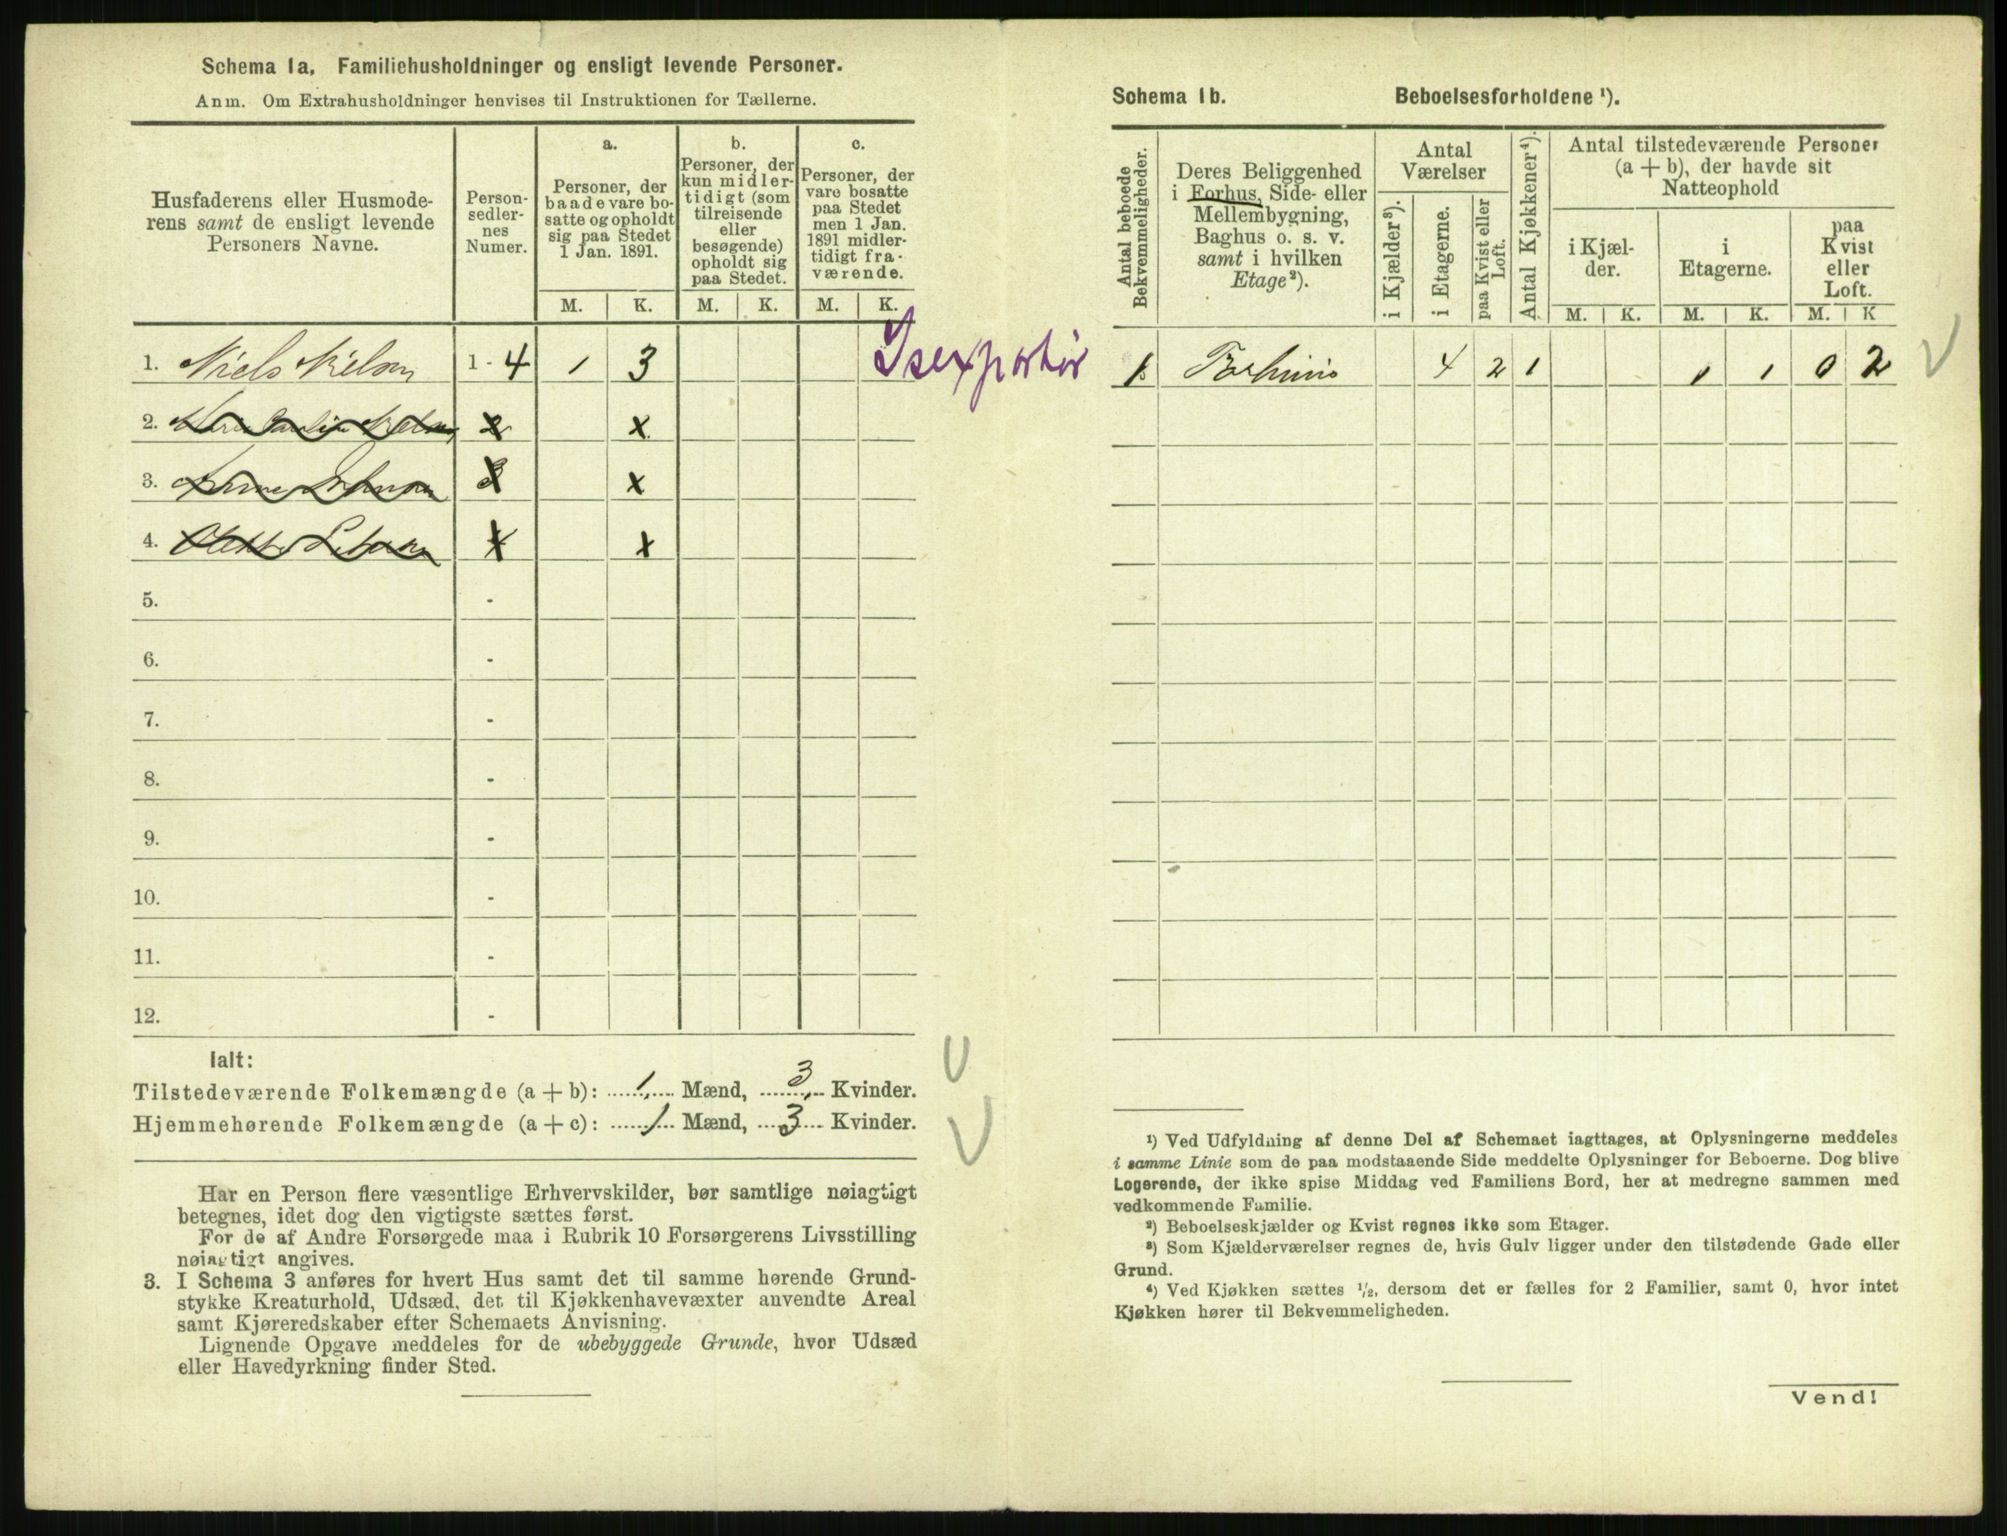 Schema 1a. Familiehusholdninger og ensligt levende Personer.
Anm. Om Extrahusholdninger henvises til Instruktionen for Tællerne.
Husfaderens eller Husmoderens samt de ensligt levende Personers Navne.
Personsedlernes Numer.
a. Personer, der baade vare bosatte og opholdt sig paa Stedet 1 Jan. 1891.
b. Personer, der kun midlertidigt (som tilreisende eller besøgende) opholdt sig paa Stedet.
c. Personer, der vare bosatte paa Stedet men 1 Jan. 1891 midlertidigt fraværende.
M. K. M. K. M. K.
1. Niels Nielsen 1 - 4 1 3 Isexportør
2. x
3. x
4. x
5. -
6. -
7. -
8. -
9. -
10. -
11. -
12. -
Ialt:
Tilstedeværende Folkemængde (a + b): 1 Mænd, 3 Kvinder.
Hjemmehørende Folkemængde (a + c): 1 Mænd, 3 Kvinder.
Har en Person flere væsentlige Erhvervskilder, bør samtlige nøiagtigt
betegnes, idet dog den vigtigste sættes først.
For de af Andre Forsørgede maa i Rubrik 10 Forsørgerens Livsstilling
nøiagtigt angives.
3. I Schema 3 anføres for hvert Hus samt det til samme hørende Grund-
stykke Kreaturhold, Udsæd, det til Kjøkkenhavevæxter anvendte Areal
samt Kjøreredskaber efter Schemaets Anvisning.
Lignende Opgave meddeles for de ubebyggede Grunde, hvor Udsæd
eller Havedyrkning finder Sted.
Schema 1b. Beboelsesforholdene ¹).
Antal beboede Bekvemmeligheder.
Deres Beliggenhed i Forhus, Side- eller Mellembygning, Baghus o. s. v. samt i hvilken Etage²).
Antal Værelser
i Kjælder³).
i Etagerne.
paa Kvist eller Loft.
Antal Kjøkkener⁴).
Antal tilstedeværende Personer (a + b), der havde sit Natteophold
i Kjælder. i Etagerne. paa Kvist eller Loft.
M. K. M. K. M. K
1 4 2 1 1 1 0 2
¹) Ved Udfyldning af denne Del af Schemaet iagttages, at Oplysningerne meddeles
i samme Linie som de paa modstaaende Side meddelte Oplysninger for Beboerne. Dog blive
Logerende, der ikke spise Middag ved Familiens Bord, her at medregne sammen med
vedkommende Familie.
²) Beboelseskjælder og Kvist regnes ikke som Etager.
³) Som Kjælderværelser regnes de, hvis Gulv ligger under den tilstødende Gade eller
Grund.
⁴) Ved Kjøkken sættes ½, dersom det er fælles for 2 Familier, samt 0, hvor intet
Kjøkken hører til Bekvemmeligheden.
Vend!